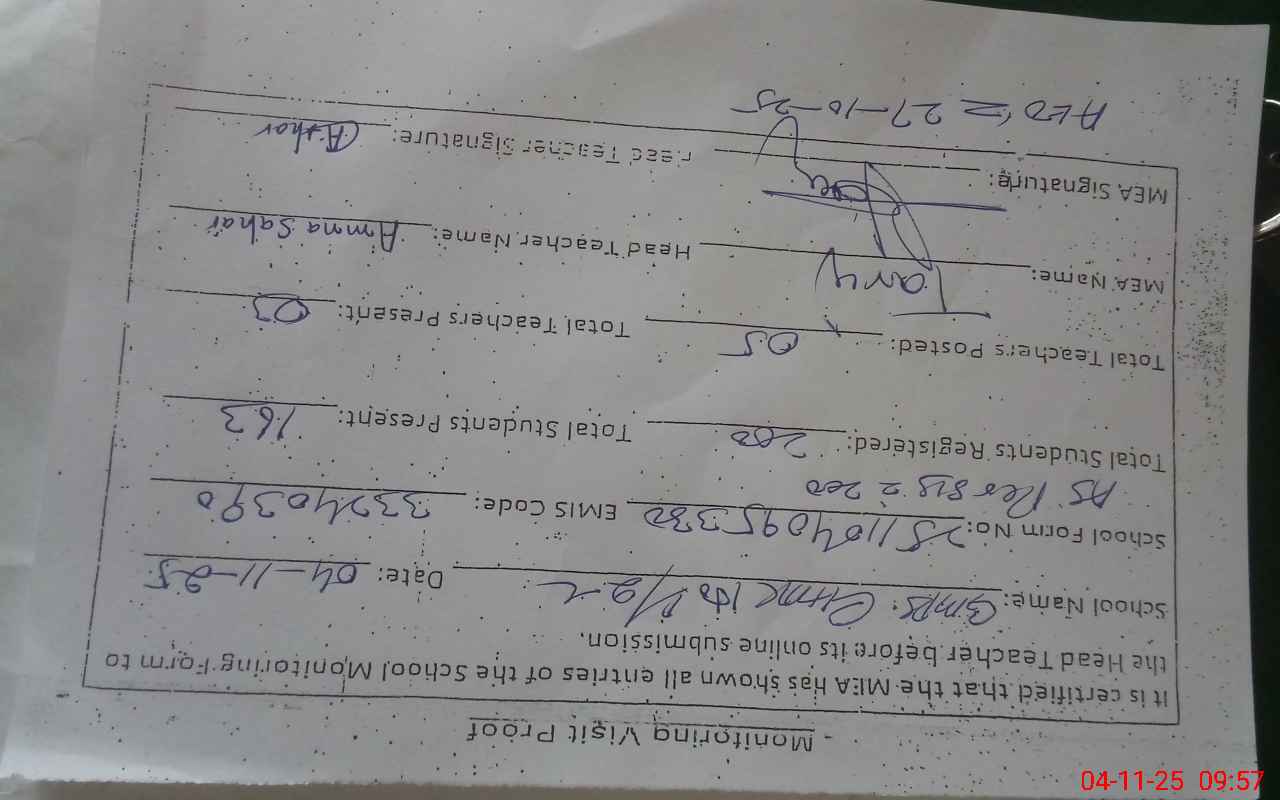 Monitoring Visit Proof
It is certified that the MEA has shown all entries of the School Monitoring Form to
the Head Teacher before its online submission.
School Name: GMPS Date: 04-11-25
School Form No: 251104095330 EMIS Code: 33240390
As Per SIS = 200
Total Students Registered: 200 Total Students Present: 163
Total Teachers Posted: 05 Total Teachers Present: 03
MEA Name: Tariq Head Teacher Name: Amna Sahar
MEA Signature: Head Teacher Signature:
AEO = 27-10-25
04-11-25 09:57